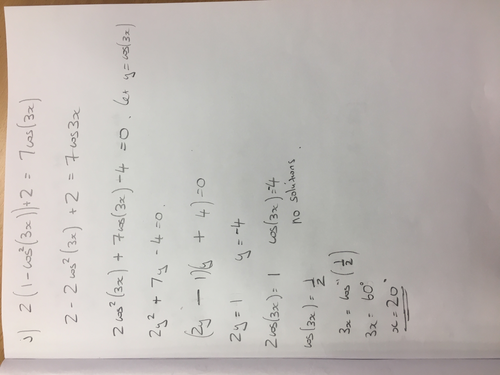 J) 2(1-cos²(3x))+2 = 7cos(3x)
2-2cos²(3x)+2 = 7cos3x
2cos²(3x)+7cos(3x)-4=0. Let y=cos(3x)
2y²+7y-4=0.
(2y-1)(y+4)=0
2y=1 y=-4
2cos(3x)=1 cos(3x)=-4
cos(3x)=1/2 no solutions.
3x=cos⁻¹(1/2)
3x=60°
x=20°